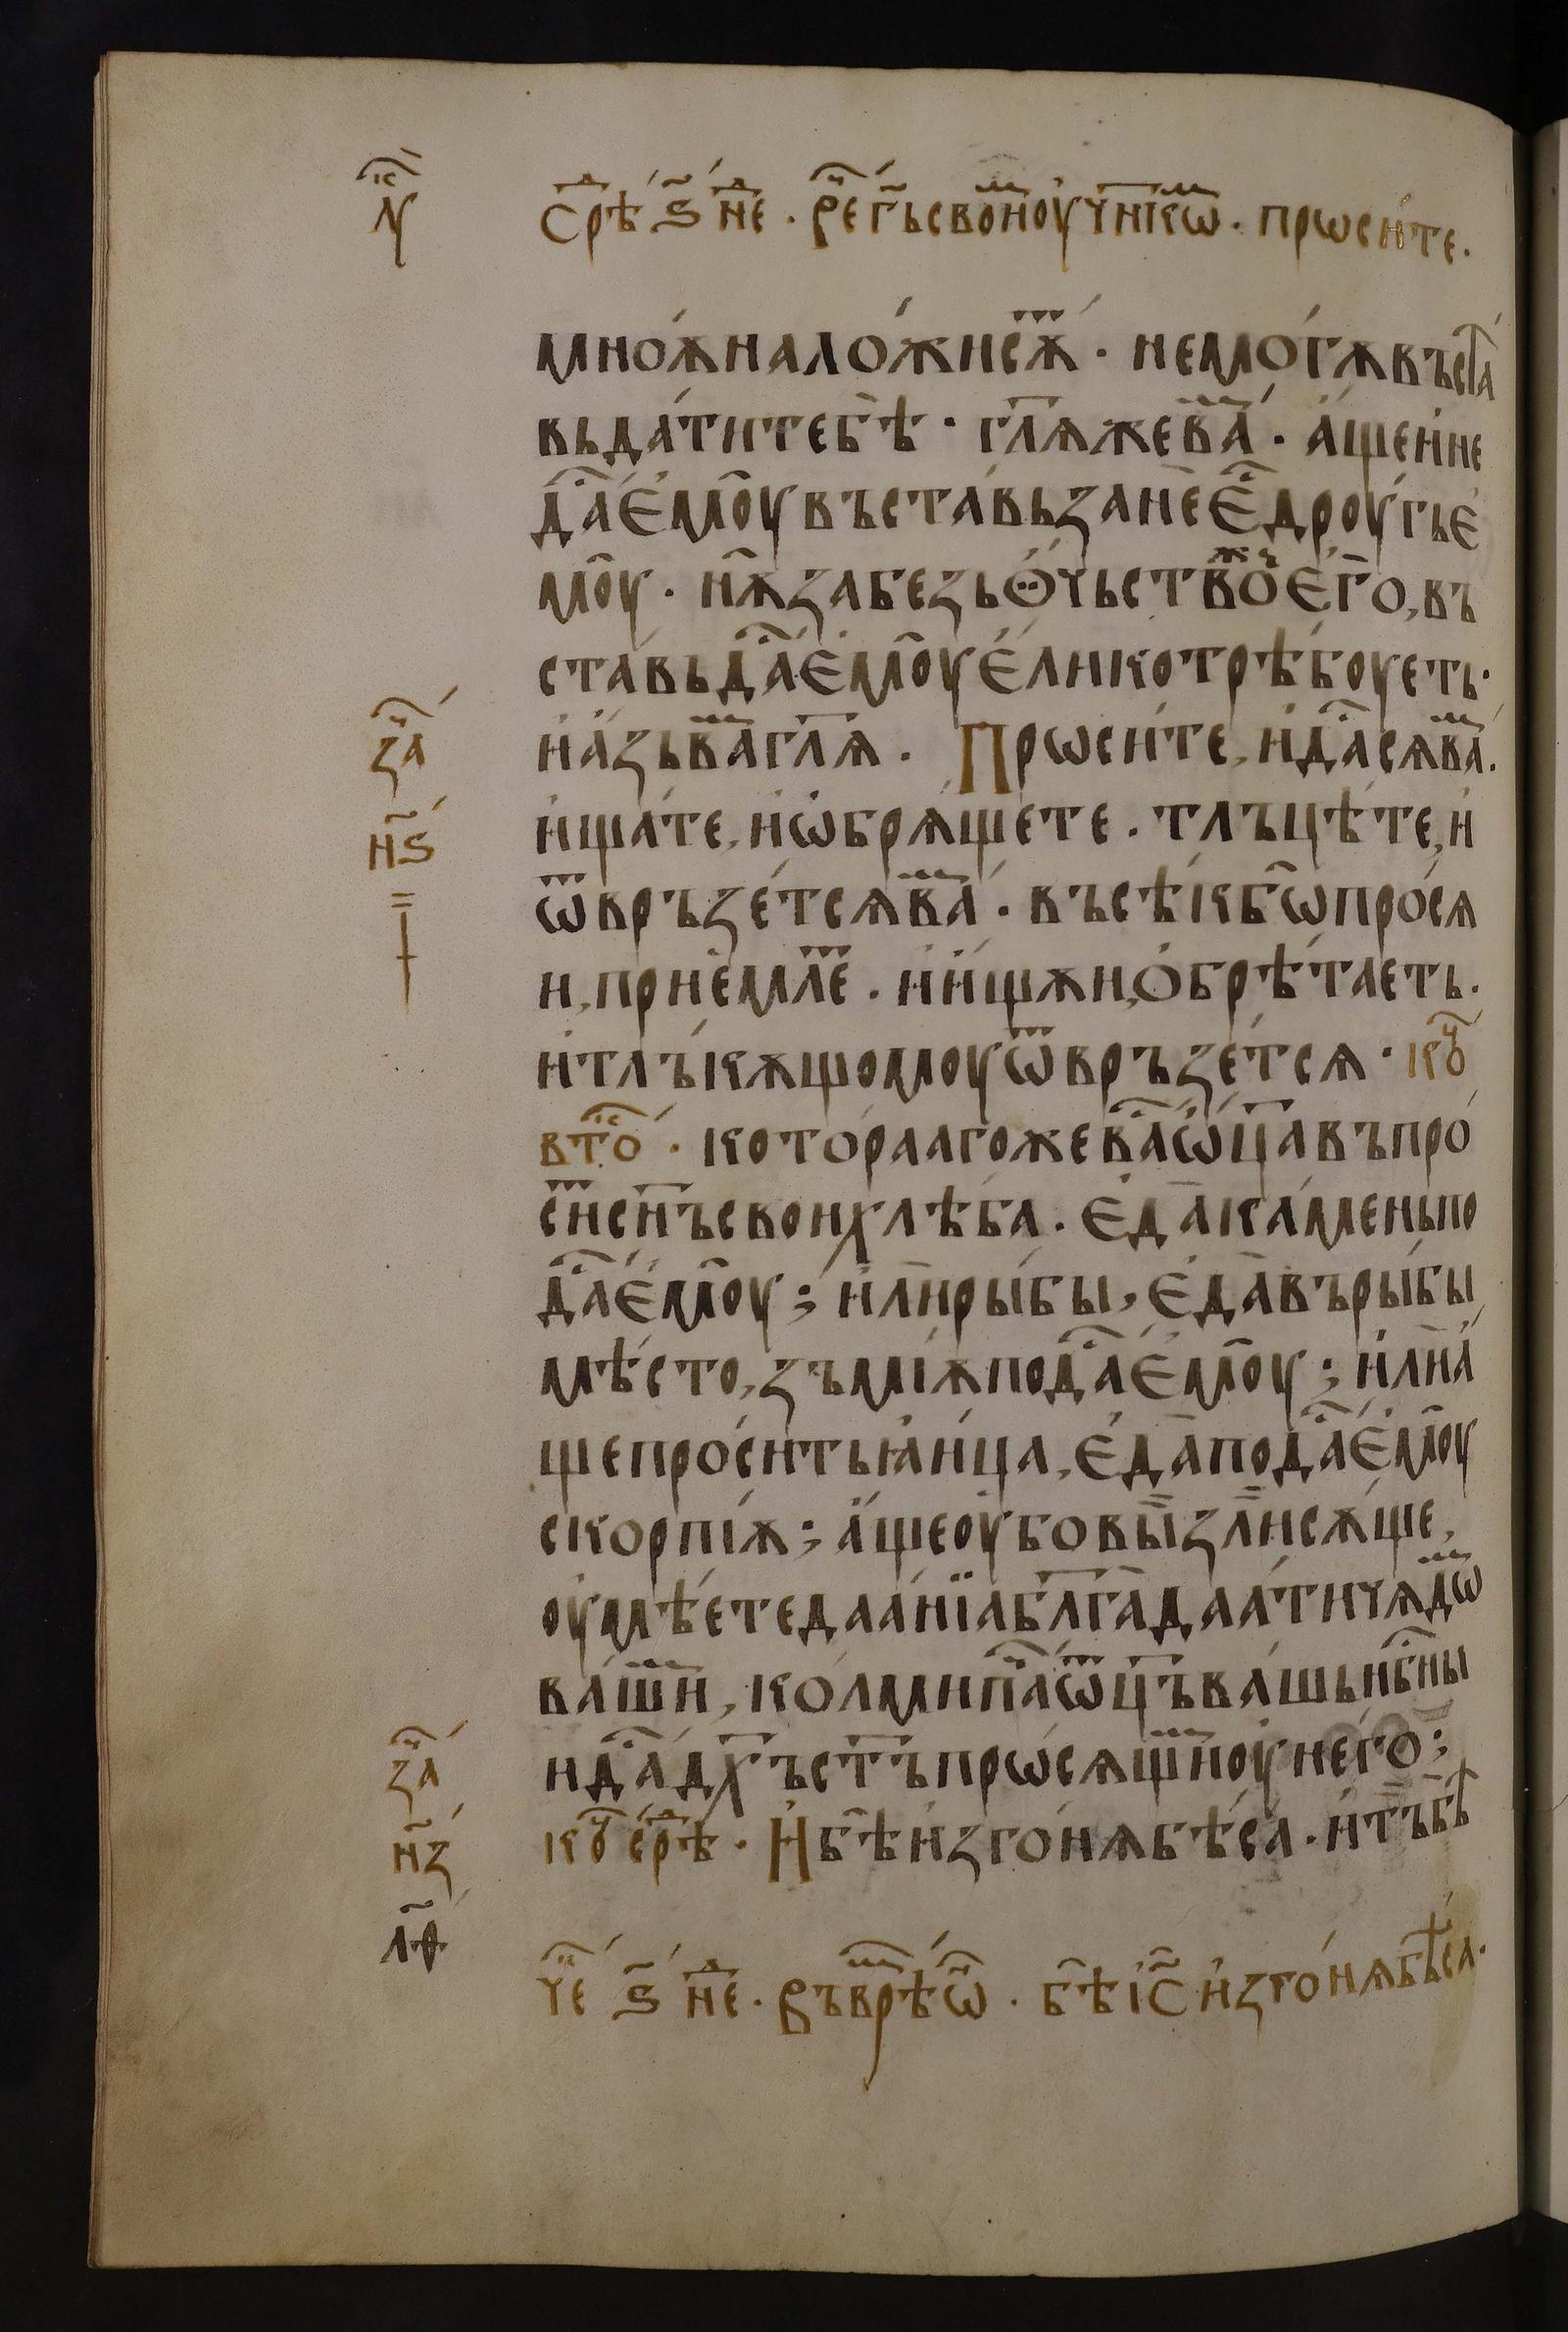 Лꙋ҇к
Срѣⷣ ѕ҃ неⷣ · Рⷱ҇е гь҃ своиⷨ оучн҃кѡⷨ · прѡси́те ·
мно́ѫ на ло́жи сѫⷮ · не мо́гѫ въста́
вь да́ти тебѣ̀ · гл҃ѧ же ваⷨ · а́ще и не
даⷭ҇ є́мꙋ̀ въста́вь занѐ є҆ⷭ҇ дроу́гь є҆
моу̀ · нѫ̀ за безьꙫ́чьствоⷤ его̀, въ
ста́вь даⷭ҇ є́моу є́лико трѣ́боуеть ·
и҆ а҆́зь ваⷨ гл҃ѧ · Прѡси́те, и҆ даⷭ҇ сѧ ваⷨ ·
заⷱ҇
и҆ща́те, и҆ ѡ҆брѧ́щете · тлъцѣ́те, и҆
н҃ѕ
ѿвръзе́тсѧ ваⷨ · въсѣ́к бѡ̀ про́сѧ
и, прие́млеⷮ · и҆ и҆́щѫи, ѻбрѣ́таеть ·
и҆ тлъ́кѫщомоу ѿвръзе́тсѧ · коⷰ҇
втоⷬ҇ · кото́рааго же ваⷭ҇ ѡ҆ц҃а въпро́
сиⷮ сн҃ъ свои хлѣ́ба · є҆да̀ ка́мень по
даⷭ҇ є́моу ; и҆лѝ ры́бы, є҆да̀ въ ры́бы
мѣ́сто, зъмі́ѫ подаⷭ҇ є́моу ; и҆лѝ а́
ще про́сить ꙗ҆и́ца, є҆да̀ подаⷭ҇ є́моу
скорпі́ѫ ; а҆́ще оу҆бо вы̏ зли̏ сѫ́ще,
оу҆мѣ́ете даані́а бл҃га̀ даа́ти чѧ́дѡⷨ
ва́шиⷨ, ко́лми паⷱ҇ ѿц҃ъ ва́шь нбⷭ҇ны
и даⷭ҇ дх҃ъ ст҃ъ прѡ́сѧщиⷨ оу него̀ ;
заⷱ҇
коⷰ҇ срѣⷣ · И҆ бѣ̀ изго́нѧ бѣ́са · и҆ тъ̀ бѣ̀
н҃з
чеⷮ ѕ҃ неⷣ · Въ врѣⷨ ѡⷩ҇ · бѣ̀ і҆с҃ и҆зго́нѧ бѣ́са ·